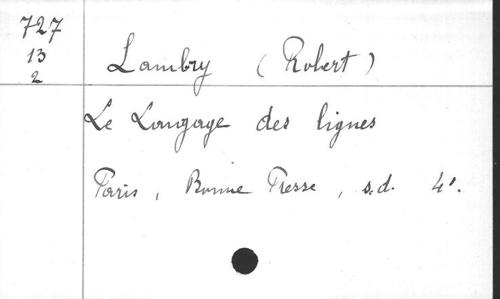 727
13
2
Lambry (Robert)
Le Langage des lignes
Paris, Bonne Presse, s.d. 4°.